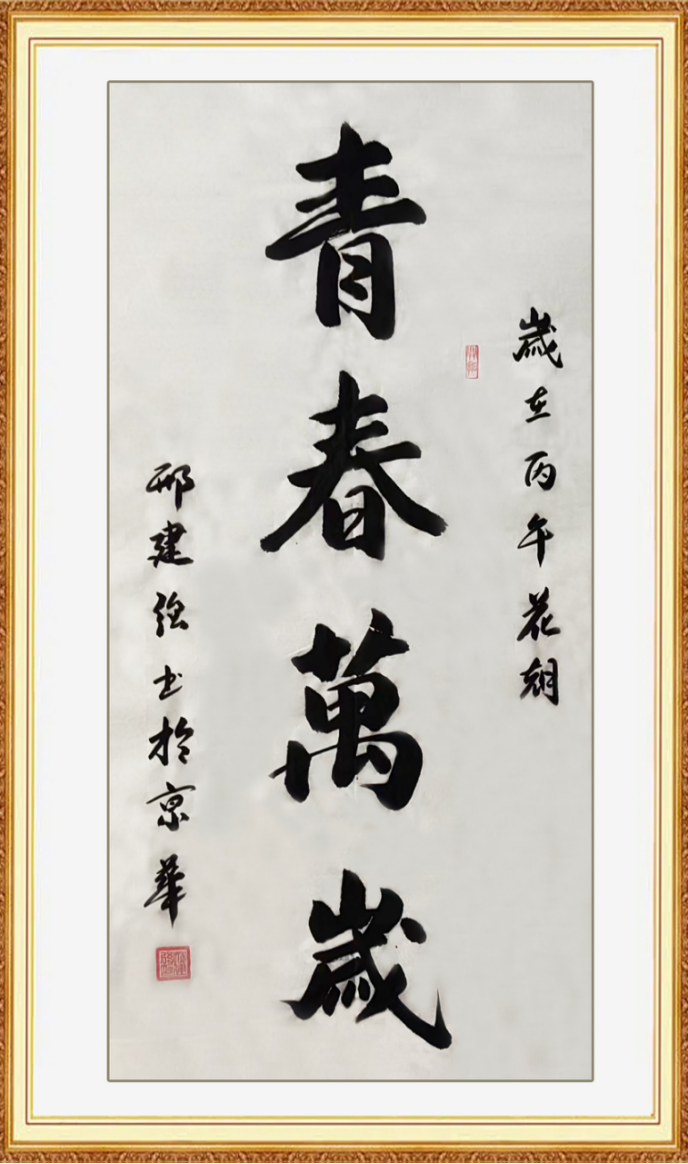 歲在丙午花朝
青春萬歲
邢建强书於京華